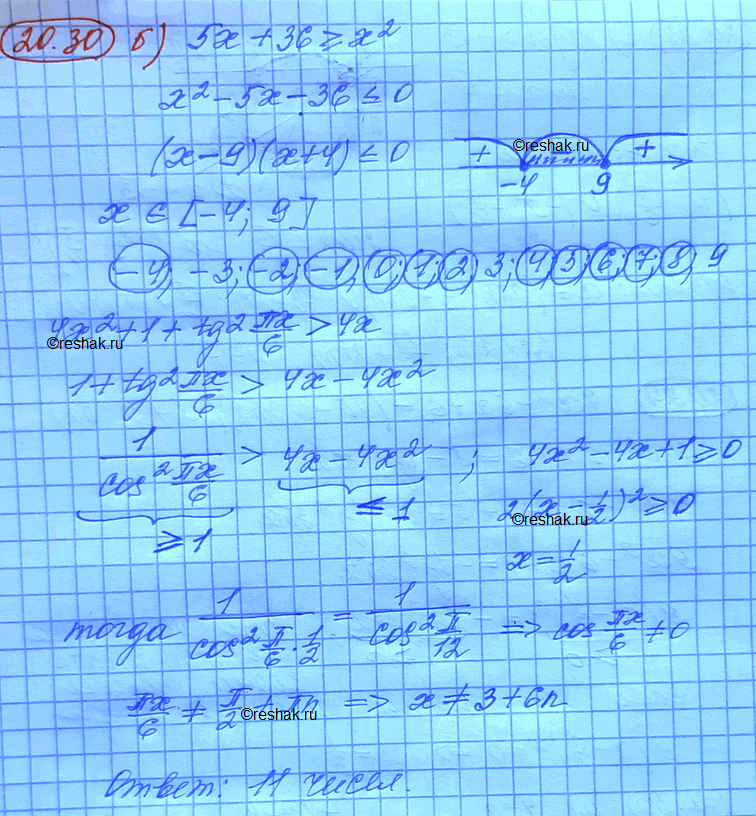 20.30 б) 5x + 36 ≥ x²
x² - 5x - 36 ≤ 0
(x - 9)(x + 4) ≤ 0 + - + ©reshak.ru
-4 9
x ∈ [-4; 9]
-4; -3; -2; -1; 0; 1; 2; 3; 4; 5; 6; 7; 8; 9
4x² + 1 + tg² πx/6 > 4x
©reshak.ru
1 + tg² πx/6 > 4x - 4x²
1/cos² πx/6 > 4x - 4x² ; 4x² - 4x + 1 ≥ 0
≥ 1 ≤ 1 2(x - 1/2)² ≥ 0
©reshak.ru
x = 1/2
тогда 1/cos² π/6 · 1/2 = 1/cos² π/12 => cos πx/6 ≠ 0
πx/6 ≠ π/2 + πn => x ≠ 3 + 6n
©reshak.ru
Ответ: 11 чисел.